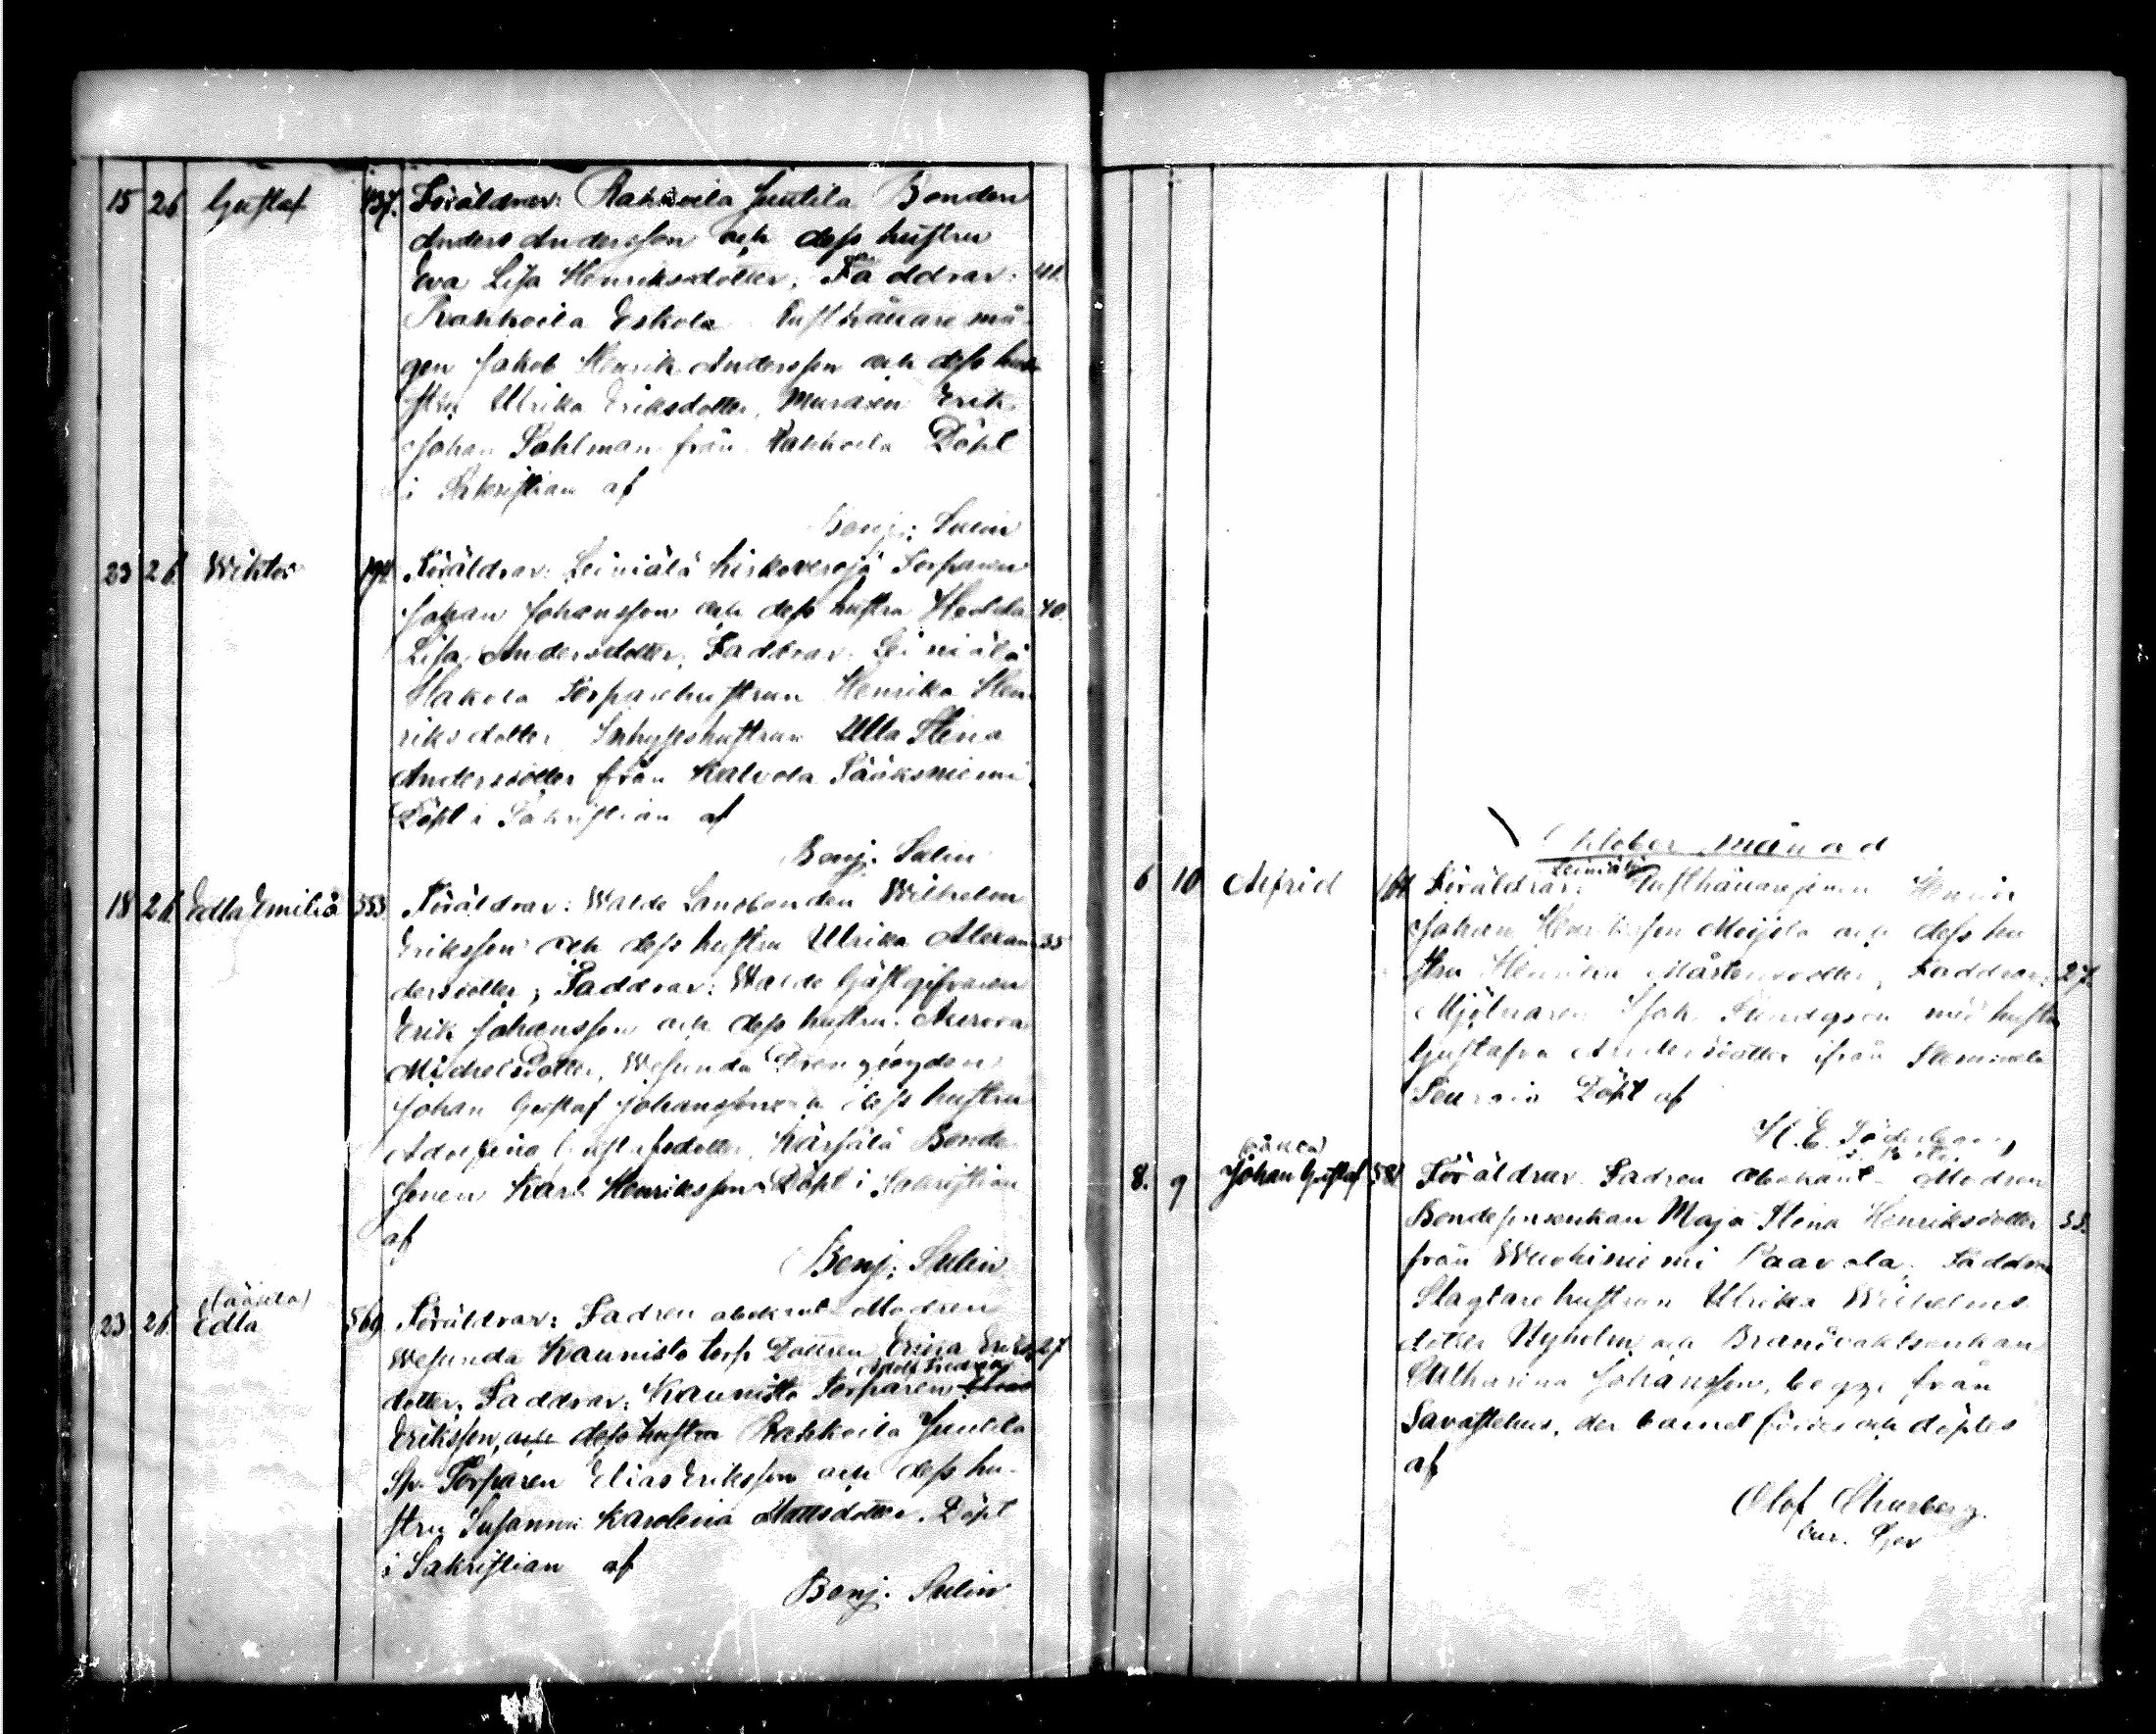 15 26 Gustaf 437. Föräldrar: Rahkoila Juutila Bonden
Anders Andersson och dess hustru
Eva Lisa Henriksdotter, Faddrar: 41.
Rahkoila Eskola Inhysesmå
gen Jakob Henrik Andersson och dess hu
stru Ulrika Eriksdotter, Muraren Erik
Johan Pahlman från Rahkoila Döpt
i Sakristian af
Benj: Sulin
23 26 Wiktor Föräldrar: Leiniälä Torparen
Johan Johansson och dess hustru Hedda 40.
Lisa Andersdotter, Faddrar: Leiniälä
Torparehustrun Henrika Hen
riksdotter Inhyseshustrun Ulla Stina
Andersdotter från Kalvola Pääksniemi
Döpt i Sakristian af
Benj. Sulin
18 26 Edla Emilia 553 Föräldrar: Walde Landbonden Wilhelm
Eriksson och dess hustru Ulrika Alexan 35
dersdotter; Faddrar: Walde Gästgifvaren
Erik Johansson och dess hustru Aurora
Michelsdotter, Wesunda Drengvogden
Johan Gustaf Johansson och dess hustru
Adolfina Gustafsdotter, Kärjälä Bonde
sonen Karl Henriksson Döpt i Sakristian
af
Benj: Sulin
(oäkta)
23. 26 Edla 569 Föräldrar: Fadren obekant Modren
Wesunda Kaunisto torp Dottren Erica Eriks 27
Adolf Fredrik
dotter, Faddrar: Kaunisto Torparen Elias
Eriksson, och dess hustru Rahkoila Juutila
Sp. Torparen Elias Eriksson och dess hu-
stru Susanna Karolina Mattsdotter. Döpt
i Sakristian af
Benj. Sulin
Oktober månad
Leiniälä
6 10 Alfrid 164 Föräldrar: Henrik
Johan och dess hu
stru Henrika Mårtensdotter, Faddrar: 27.
Mjölnaren med hustru
Gustafva Andersdotter ifrån
Döpt af
K. E. Söderberg
(oäkta)
8. 9 Johan Gustaf 581 Föräldrar Fadren obekant Modren
Bondesonenkan Maja Stina Henriksdotter 33.
från Wuohiniemi Paavola. Faddrar
Slagtarehustrun Ulrika Wilhelms
dotter Nyholm och Brandvaktsenkan
Catharina Johansson, begge från
Tavastehus, der barnet födes och döptes
af
Olof Churberg.